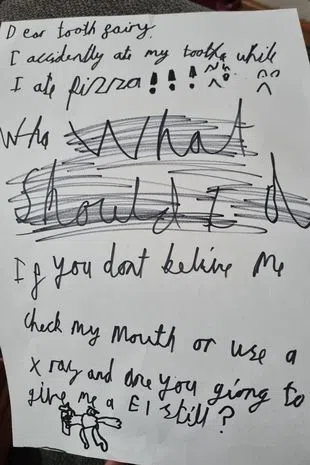 Dear tooth fairy.
I accidently ate my tooth while
I ate pizza!!!
Wha What
Should I d
If you dont belive me
check my mouth or use a
x ray and are you giong to
give me a £1 still?